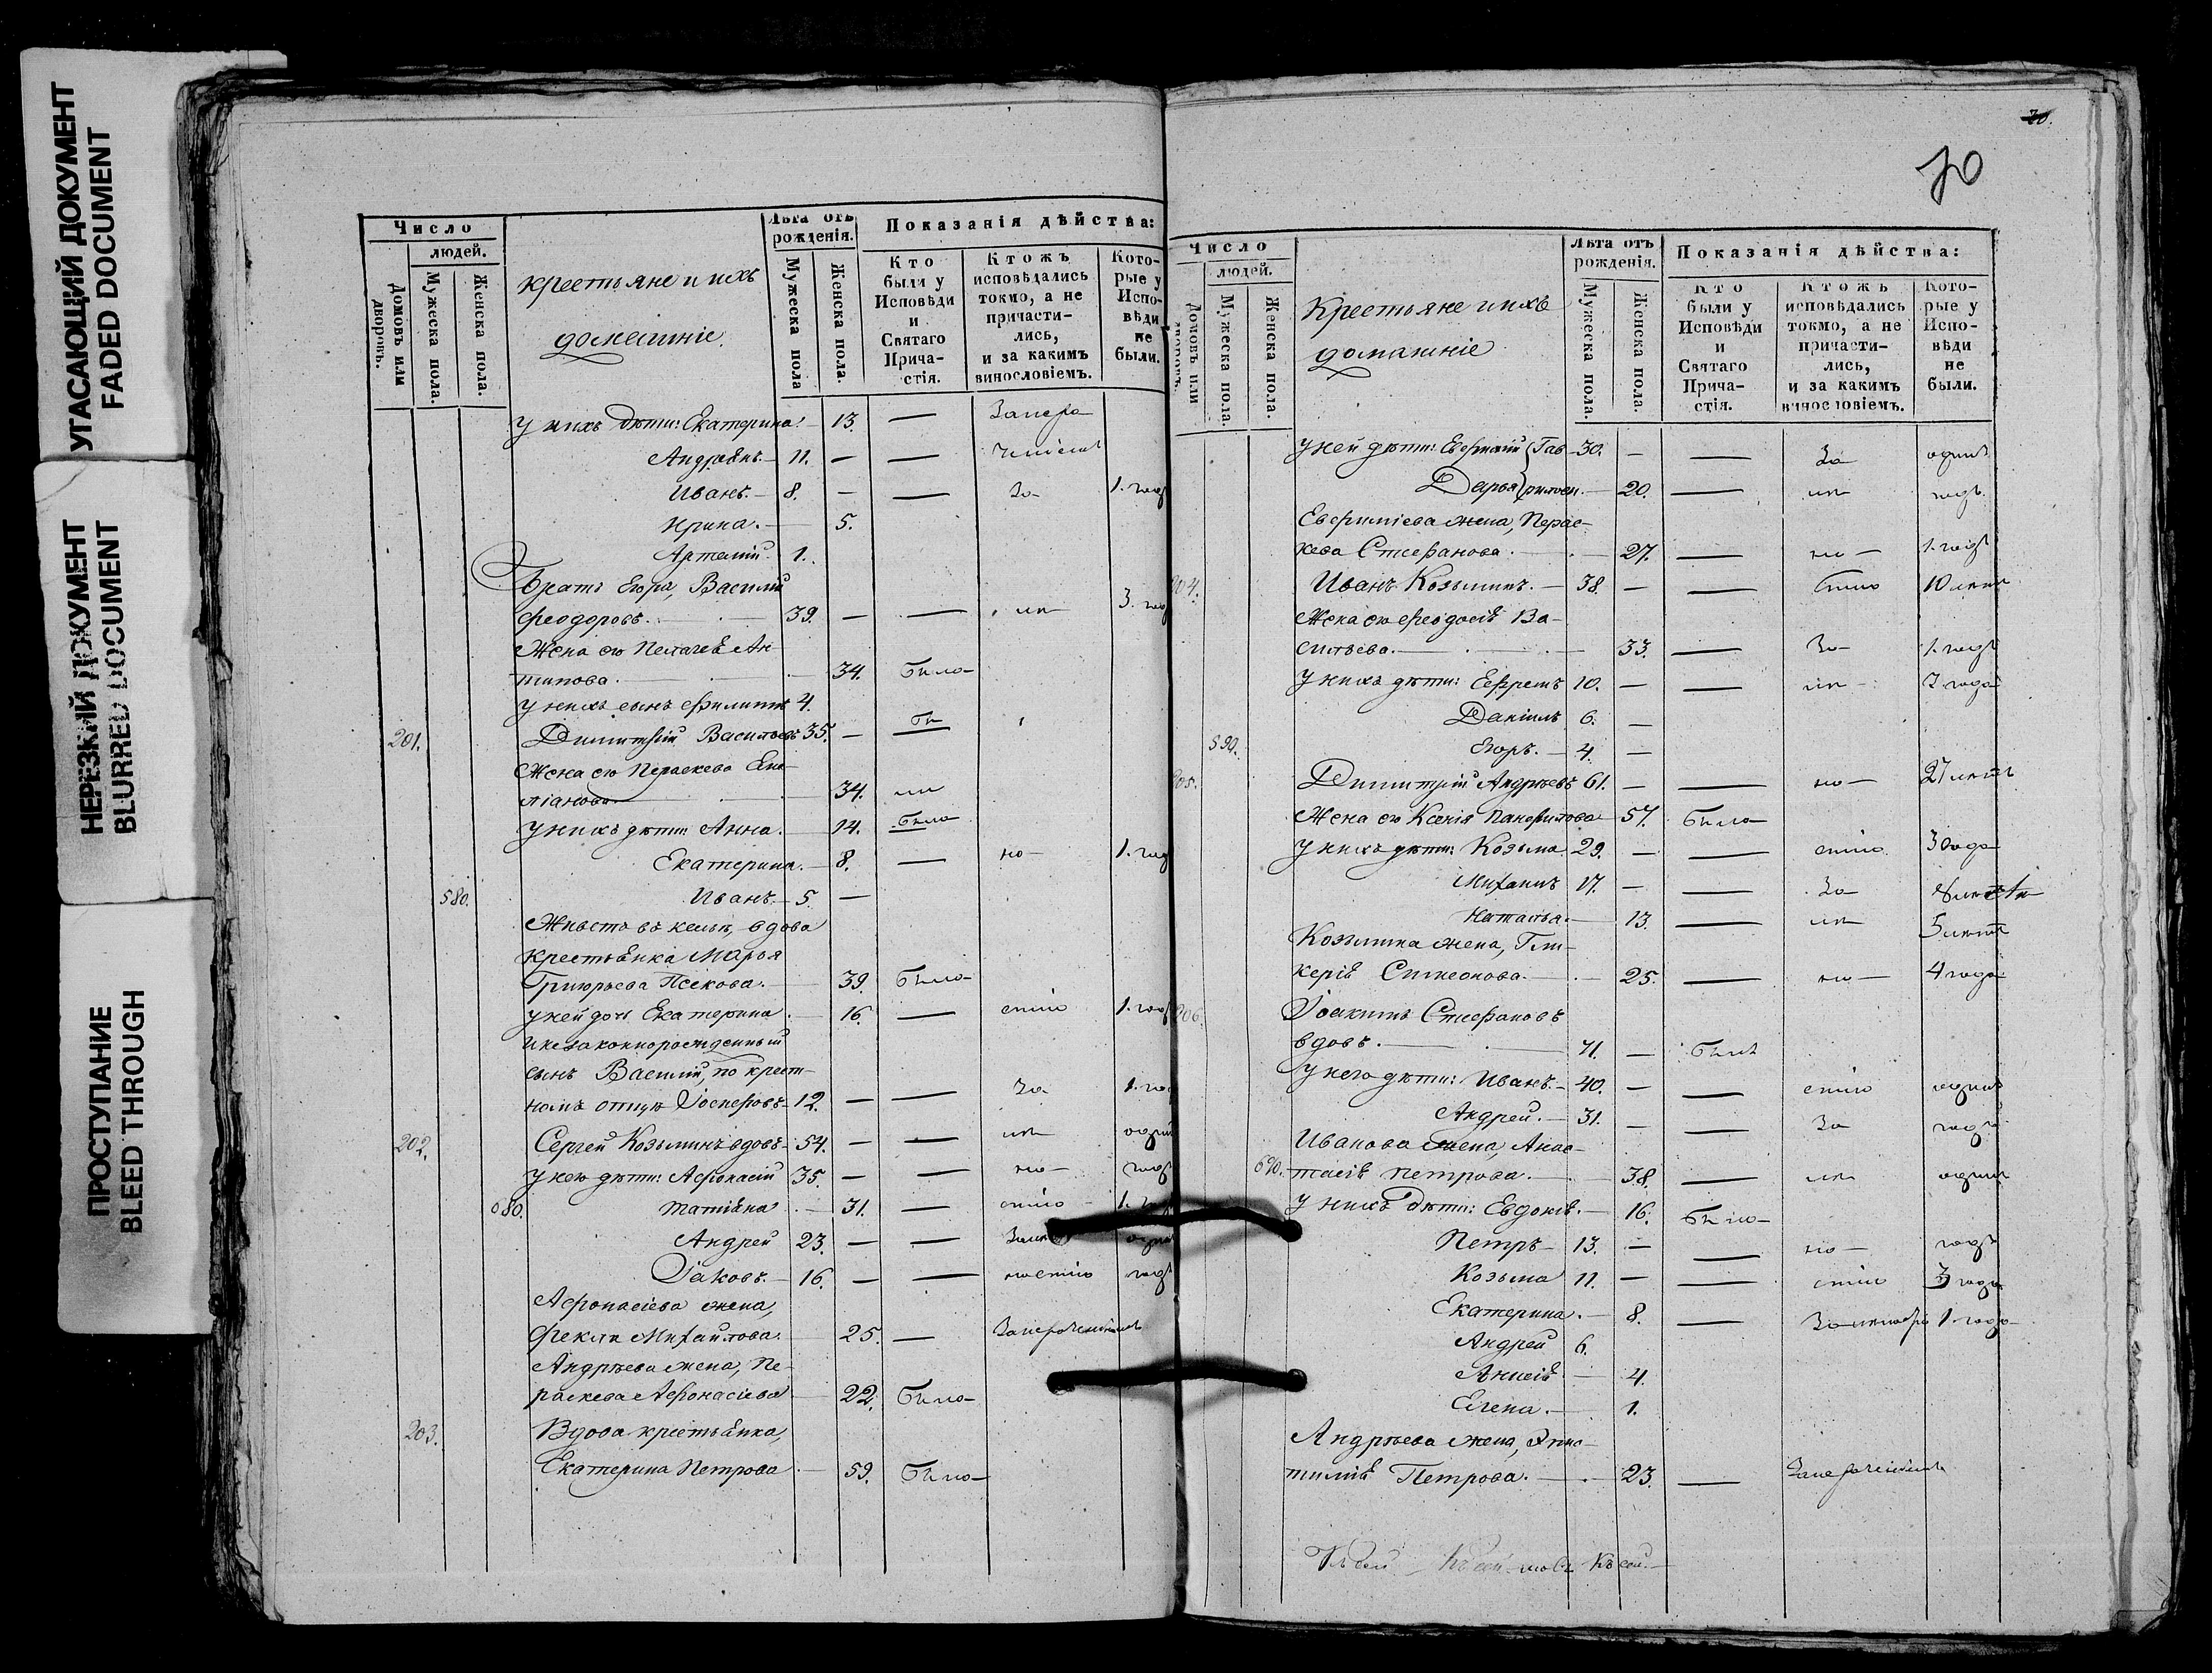 УГАСАЮЩИЙ ДОКУМЕНТ
FADED DOCUMENT
НЕРЕЗКИЙ ДОКУМЕНТ
BLURRED DOCUMENT
ПРОСТУПАНИЕ
BLEED THROUGH
Число людей. Домовъ или дворовъ. Мужеска пола. Женска пола.
крестьяне и ихъ
домашніе
Лѣта отъ рожденія. Мужеска пола Женска пола.
Показанія дѣйства:
Кто были у Исповѣди и Святаго Прича-стія.
Ктожъ исповѣдались токмо, а не причасти-лись, и за какимъ винословіемъ.
Кото-рые у Испо-вѣди не были.
у нихъ дѣти: Екатерина 13. —
Андреянъ 11. — —
Иванъ 8. — — За 1. год
Ирина 5.
Артемій 1.
Братъ Егора, Василій
Феодоровъ 39. — — 3. год
Жена его Пелагея Ан-
типова 34. Была
у нихъ сынъ Филиппъ 4.
201. Димитрій Васильевъ 35. — —
Жена его Параскева Еме-
ліанова 34.
у нихъ дѣти: Анна 14. Была
Екатерина 8. — но 1. год
580. Иванъ 5. —
Живетъ въ кельи, вдова
крестьянка Марья
Григорьева Пѣскова 39. Была
у ней дочь Екатерина 16. — стію 1. год
и незаконнорожденный
сынъ Василій, по крест-
номъ отцѣ Іосифовъ 12. — — За 1. год
202. Сергей Козьминъ вдовъ 54. — —
у него дѣти: Афонасій 35. — — но год
680. Татіяна 31. — стію
Андрей 23. — —
Іаковъ 16. — — ностію год
Афонасіева жена,
Фекла Михайлова 25. —
Андрѣева жена, Пе-
раскева Афонасіева 22. Была
203. Вдова крестьянка,
Екатерина Петрова 59. Была
70.
70
Число людей. Домовъ или дворовъ. Мужеска пола. Женска пола.
Крестьяне и ихъ
домашніе
Лѣта отъ рожденія. Мужеска пола. Женска пола.
Показанія дѣйства:
Кто были у Исповѣди и Святаго Прича-стія.
Ктожъ исповѣдались токмо, а не причасти-лись, и за какимъ винословіемъ.
Кото-рые у Испо-вѣди не были.
у ней дѣти: Евфимій Гав- 30. — — За одинъ
Дарья риловы 20. — годъ
Евфиміева жена, Перас-
кева Стефанова 27. — но 1. годъ
204. Иванъ Козьминъ 38. — — стію 10 лѣтъ
Жена его Феодосія Ва-
сильева 33. За 1. годъ
у нихъ дѣти: Ефремъ 10. — — 2 года
Даніилъ 6. —
590. Егоръ 4. —
205. Димитрій Андреевъ 61. — — но 27 лѣтъ
Жена его Ксенія Панфилова 57. Была
у нихъ дѣти: Козьма 29. — — стію 3 года
Михаилъ 17. — — За
Наталья 13. — 5 лѣтъ
Козьмина жена, Гли-
керія Симеонова 25. — но 4 года
206. Іоакимъ Стефановъ
вдовъ 71. — Былъ
у него дѣти: Иванъ 40. — — стію одинъ
Андрей 31. — — За годъ
Иванова жена, Анас-
690. тасія Петрова 38. — одинъ
у нихъ дѣти: Евдокія 16. Была
Петръ 13. — — но годъ
Козьма 11. — — стію 3 года
Екатерина 8. —
Андрей 6.
Анисія 4.
Елена 1.
Андрѣева жена,
Петрова 23. —